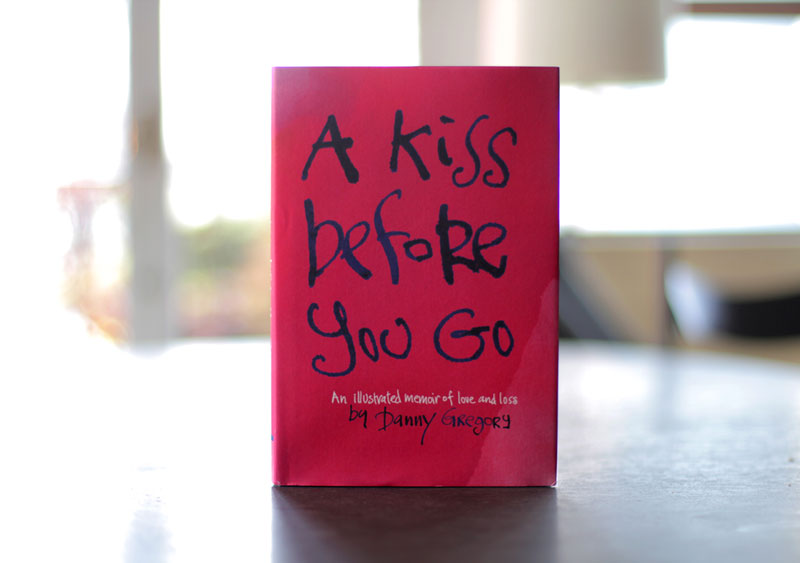 A Kiss
before
You Go
An illustrated memoir of love and loss
by Danny Gregory